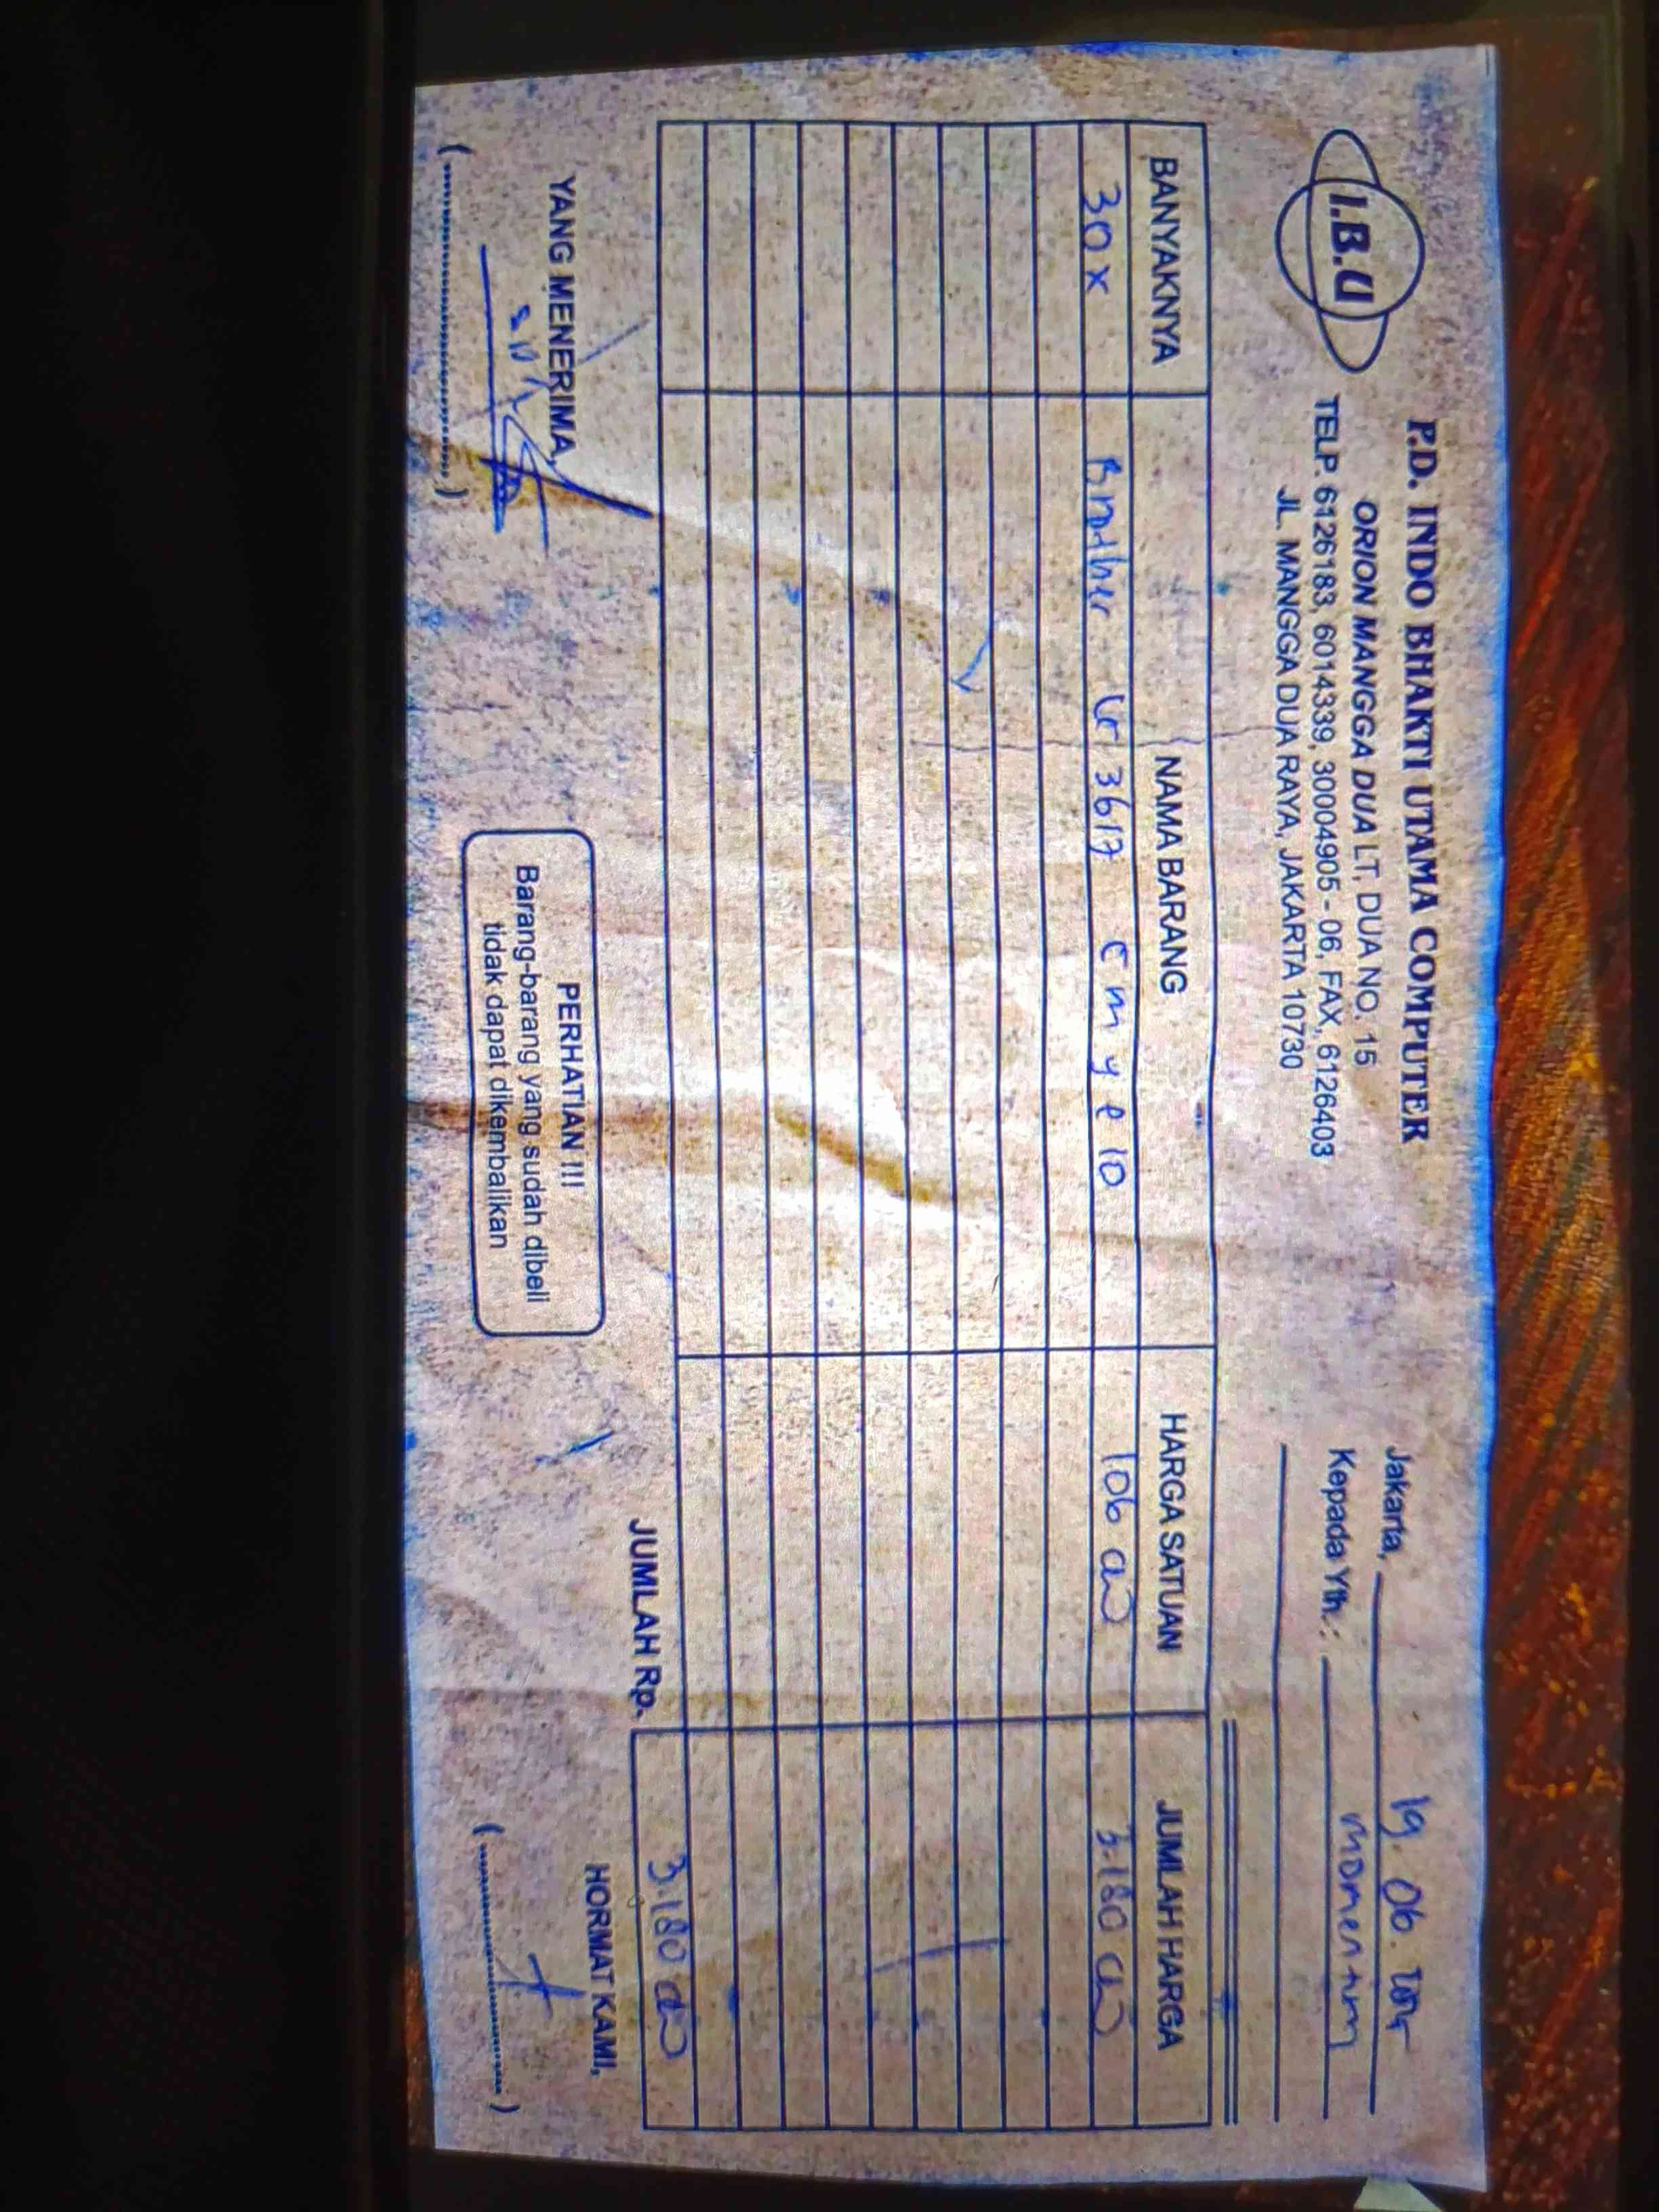 I.B.U
P.D. INDO BHAKTI UTAMA COMPUTER
ORION MANGGA DUA LT, DUA NO, 15
TELP. 6126183, 6014339, 30004905 - 06, FAX, 6126403
JL. MANGGA DUA RAYA, JAKARTA 10730
Jakarta, 19. 06.
Kepada Yth.: momentum
BANYAKNYA NAMA BARANG HARGA SATUAN JUMLAH HARGA
30x Brother 3617 C m y 10 106 3.180
JUMLAH Rp. 3.180
YANG MENERIMA,
PERHATIAN !!!
Barang-barang yang sudah dibeli
tidak dapat dikembalikan
HORMAT KAMI,